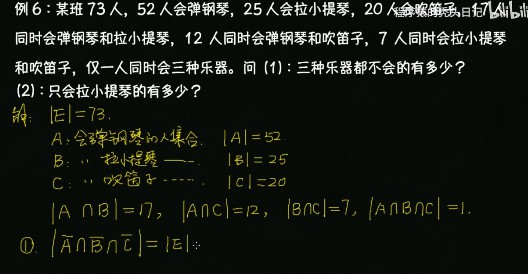 例6：某班73人，52人会弹钢琴，25人会拉小提琴，20人会吹笛子，17人
同时会弹钢琴和拉小提琴，12人同时会弹钢琴和吹笛子，7人同时会拉小提琴
和吹笛子，仅一人同时会三种乐器。问（1）：三种乐器都不会的有多少？
（2）：只会拉小提琴的有多少？
解：|E|=73.
A：会弹钢琴的人集合. |A|=52
B：〃 拉小提琴 —— . |B|=25
C：〃 吹笛子 ····· . |C|=20
|A∩B|=17, |A∩C|=12, |B∩C|=7, |A∩B∩C|=1.
①. |A̅∩B̅∩C̅|=|E|-